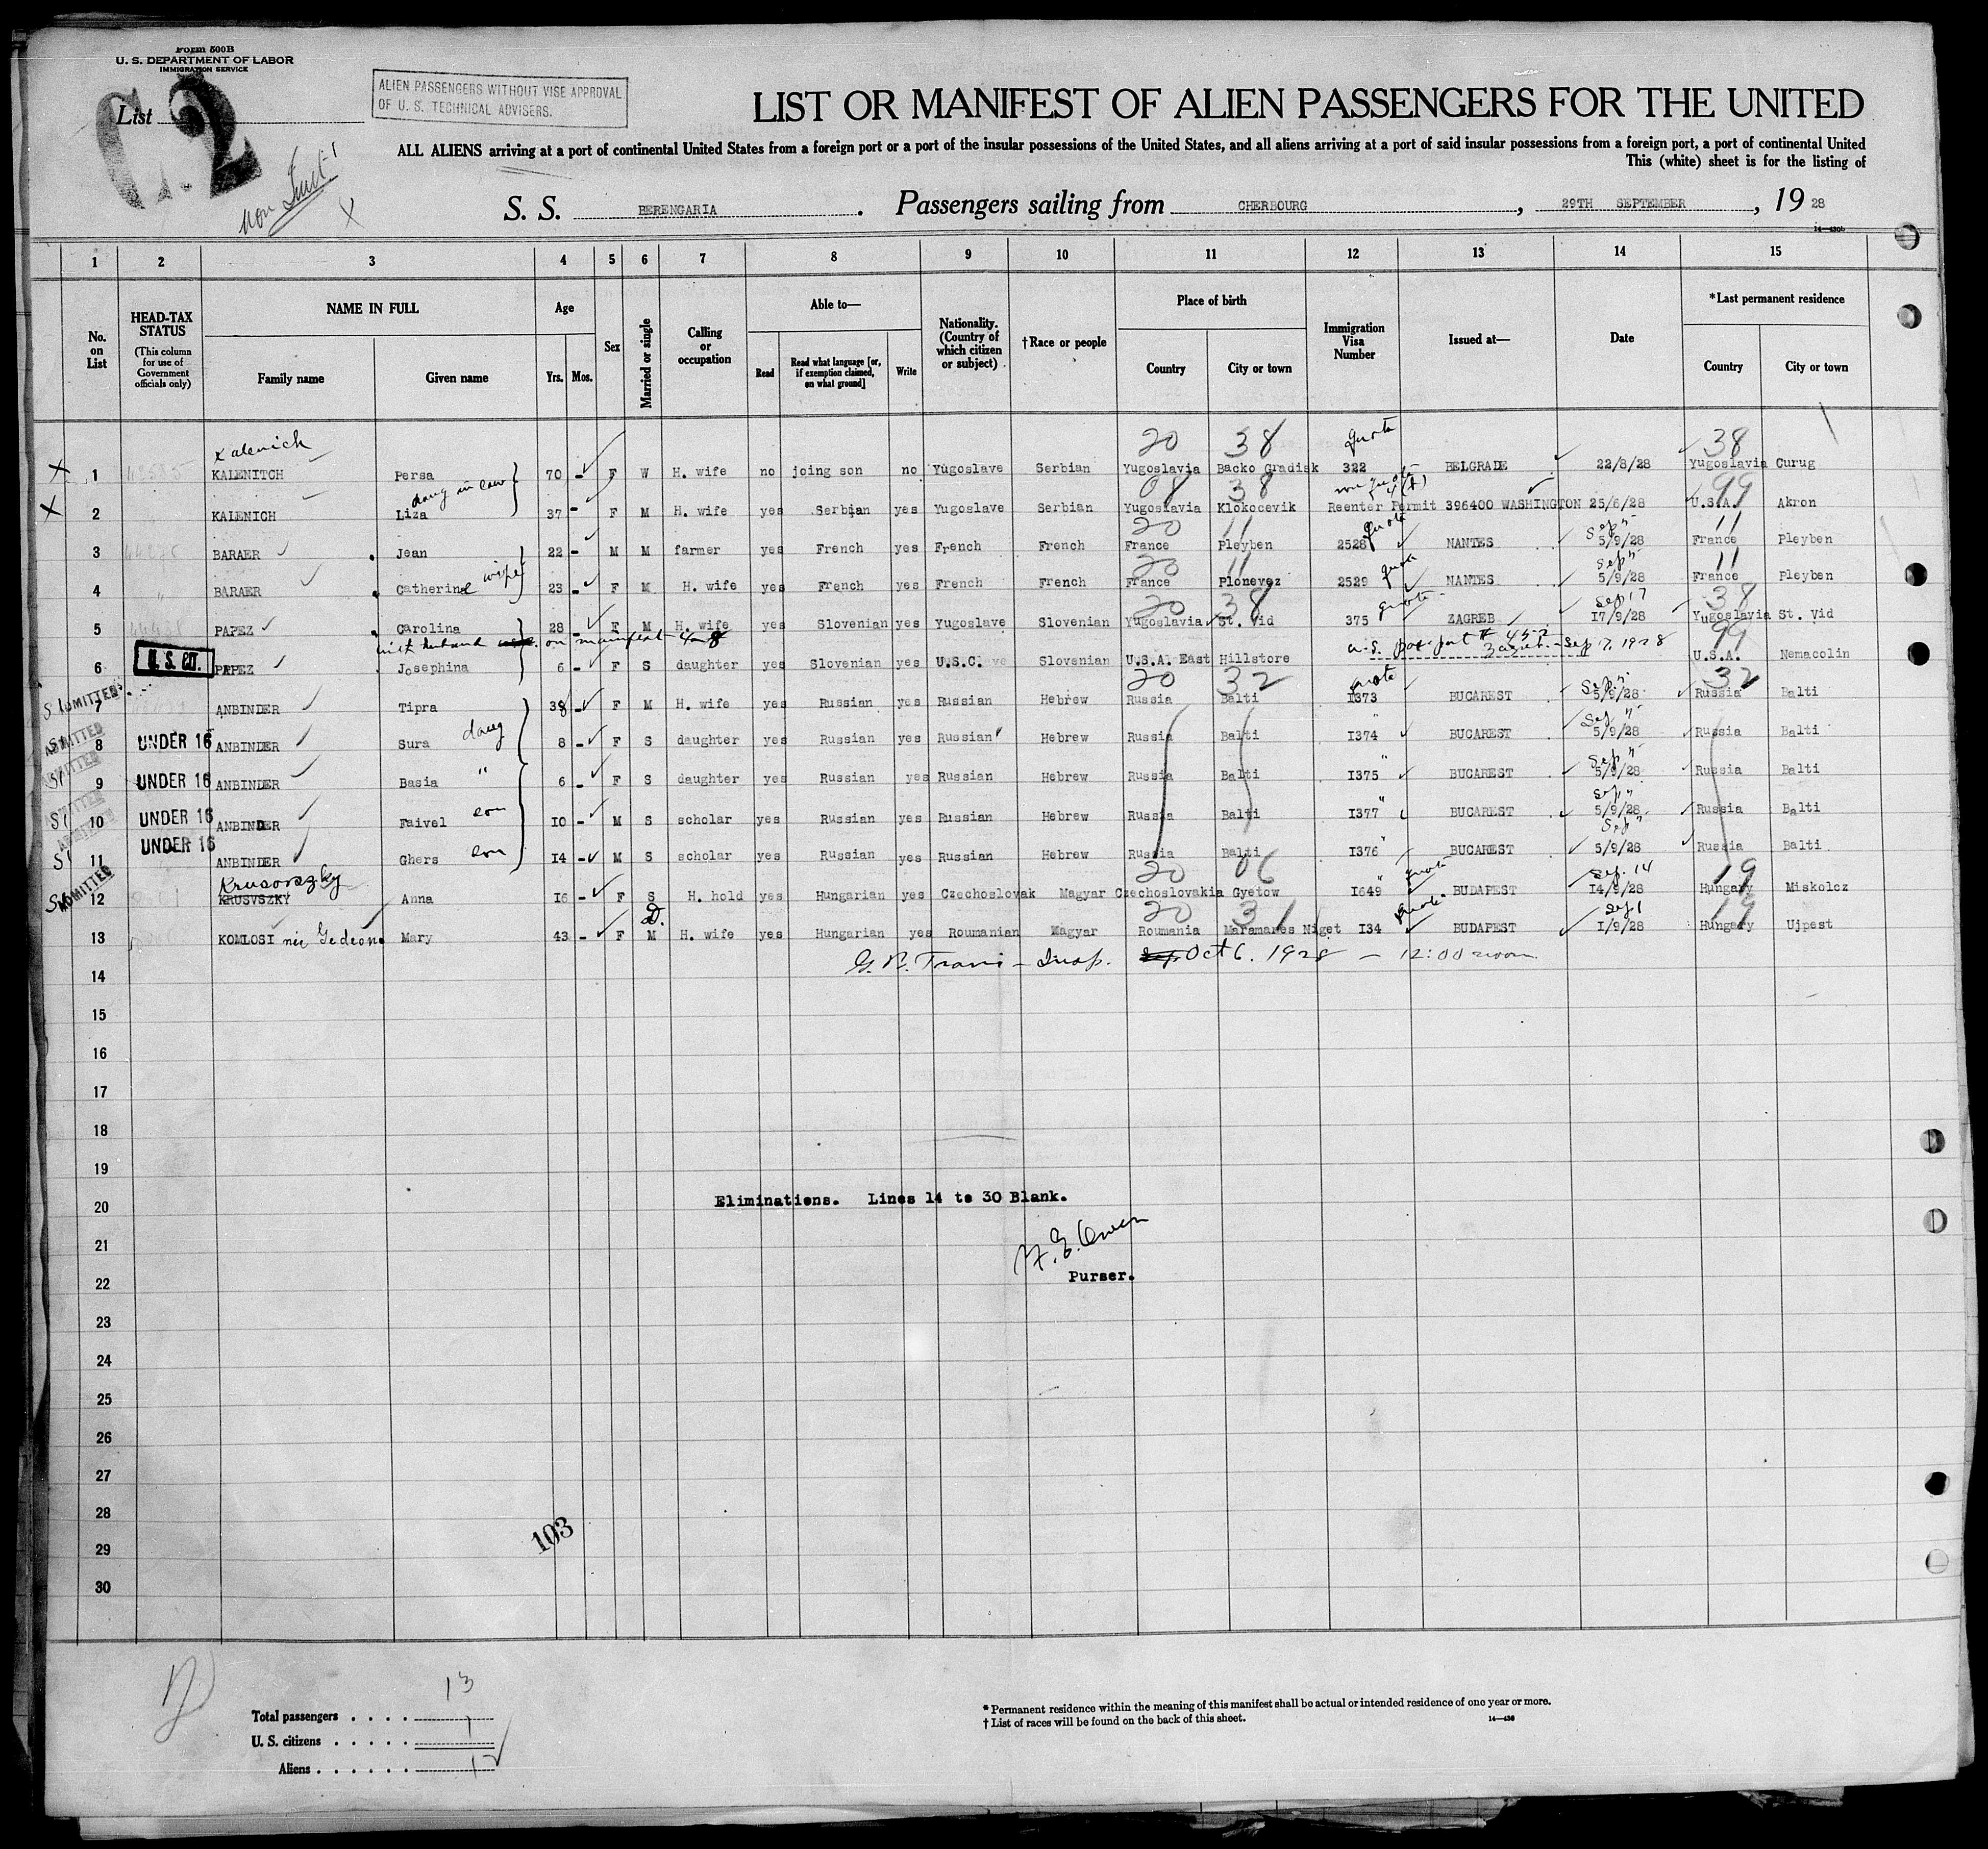 Form 500B
U. S. DEPARTMENT OF LABOR
IMMIGRATION SERVICE
List
C.2
ALIEN PASSENGERS WITHOUT VISE APPROVAL
OF U. S. TECHNICAL ADVISERS.
LIST OR MANIFEST OF ALIEN PASSENGERS FOR THE UNITED
ALL ALIENS arriving at a port of continental United States from a foreign port or a port of the insular possessions of the United States, and all aliens arriving at a port of said insular possessions from a foreign port, a port of continental United
This (white) sheet is for the listing of
S. S. BERENGARIA. Passengers sailing from CHERBOURG, 29TH SEPTEMBER, 19 28
14—430b
1 2 3 4 5 6 7 8 9 10 11 12 13 14 15
No. on List
HEAD-TAX STATUS (This column for use of Government officials only)
NAME IN FULL Family name Given name
Age Yrs. Mos.
Sex
Married or single
Calling or occupation
Able to— Read Read what language [or, if exemption claimed, on what ground] Write
Nationality. (Country of which citizen or subject)
†Race or people
Place of birth Country City or town
Immigration Visa Number
Issued at—
Date
*Last permanent residence Country City or town
Kalenich 20 38 quota 38
X 1 KALENITCH Persa 70 - F W H. wife no joing son no Yugoslave Serbian Yugoslavia Backo Gradisk 322 BELGRADE 22/8/28 Yugoslavia Curug
daug in law 08 38 non quota 4(b) 99
X 2 KALENICH Liza 37 - F M H. wife yes Serbian yes Yugoslave Serbian Yugoslavia Klokocevik Reenter Permit 396400 WASHINGTON 25/6/28 U.S.A. Akron
20 11 quota Sep " 11
3 BARAER Jean 22 - M M farmer yes French yes French French France Pleyben 2528 NANTES 5/9/28 France Pleyben
wife 20 11 quota Sep " 11
4 BARAER Catherine 23 - F M H. wife yes French yes French French France Plonevez 2529 NANTES 5/9/28 France Pleyben
20 38 quota Sep 17 38
5 PAPEZ Carolina 28 - F M H. wife yes Slovenian yes Yugoslave Slovenian Yugoslavia St. Vid 375 ZAGREB 17/9/28 Yugoslavia St. Vid
with husband on manifest 4-8 U.S. passport # Zagreb - Sep 17, 1928 99
6 U. S. CIT. PAPEZ Josephina 6 - F S daughter yes Slovenian yes U.S.C. Slovenian U.S.A. East Hillstore U.S.A. Nemacolin
20 32 quota Sep " 32
SI ADMITTED 7 ANBINDER Tipra 38 - F M H. wife yes Russian yes Russian Hebrew Russia Balti 1373 BUCAREST 5/9/28 Russia Balti
daug " Sep "
SI ADMITTED 8 UNDER 16 ANBINDER Sura 8 - F S daughter yes Russian yes Russian Hebrew Russia Balti 1374 BUCAREST 5/9/28 Russia Balti
" " Sep "
SI ADMITTED 9 UNDER 16 ANBINDER Basia 6 - F S daughter yes Russian yes Russian Hebrew Russia Balti 1375 BUCAREST 5/9/28 Russia Balti
son " Sep "
SI ADMITTED 10 UNDER 16 ANBINDER Faivel 10 - M S scholar yes Russian yes Russian Hebrew Russia Balti 1377 BUCAREST 5/9/28 Russia Balti
son " Sep "
SI ADMITTED 11 UNDER 16 ANBINDER Ghers 14 - M S scholar yes Russian yes Russian Hebrew Russia Balti 1376 BUCAREST 5/9/28 Russia Balti
Krusovszky 20 06 " quota Sep. 14 19
SI ADMITTED 12 KRUSVSZKY Anna 16 - F S H. hold yes Hungarian yes Czechoslovak Magyar Czechoslovakia Gyetow 1649 BUDAPEST 14/9/28 Hungary Miskolcz
D. 20 31 quota Sep 1 19
13 KOMLOSI nee Gedeone Mary 43 - F M H. wife yes Hungarian yes Roumanian Magyar Roumania Maramares Niget 134 BUDAPEST 1/9/28 Hungary Ujpest
Insp. Oct 6. 1928 - 12:00 noon
14
15
16
17
18
19
20 Eliminations. Lines 14 to 30 Blank.
21
22 Purser.
23
24
25
26
27
28
29 103
30
Total passengers . . . . 13
U. S. citizens . . . . . 1
Aliens . . . . . . 12
* Permanent residence within the meaning of this manifest shall be actual or intended residence of one year or more.
† List of races will be found on the back of this sheet. 14—430